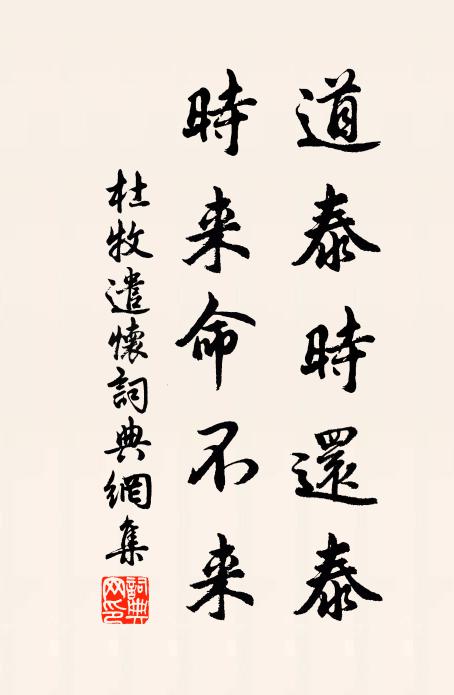 道泰時還泰
時来命不来
杜牧遣懷詞典網集
詞典
网印